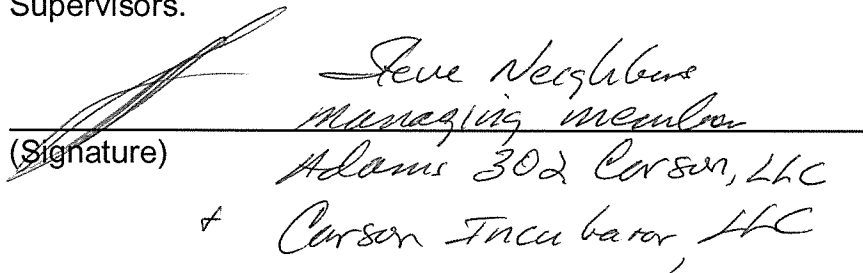 Supervisors.
Steve Neighbors
managing member
(Signature)
Adams 302 Carson, LLC
+ Carson Incubator, LLC